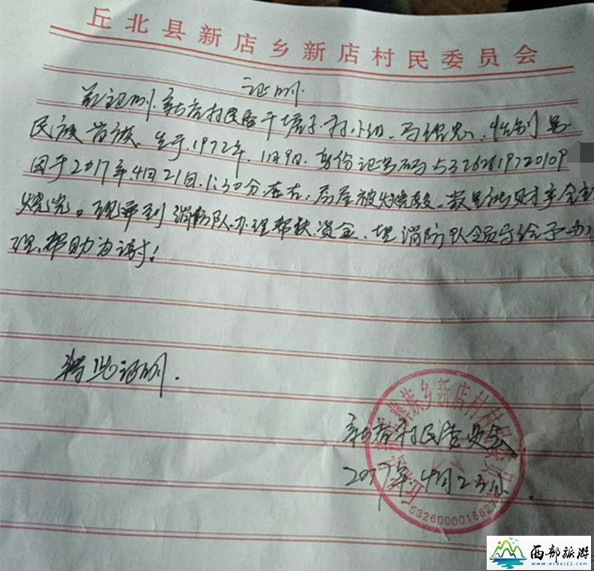 丘北县新店乡新店村民委员会
证明
兹证明,新店村民委干塘子村小组,马,性别男
民族苗族,生于,1972年,1月9日,身份证号码53262619720109
因于2017年4月21日,1:30分左右,房屋被烧毁,数及财产全部
烧完。现来到消防队办理帮扶资金,望消防队领导给予办
理,帮助为谢!
特此证明.
新店村民委员会
2017年4月23日
乡新店村村民委员会
西部旅游